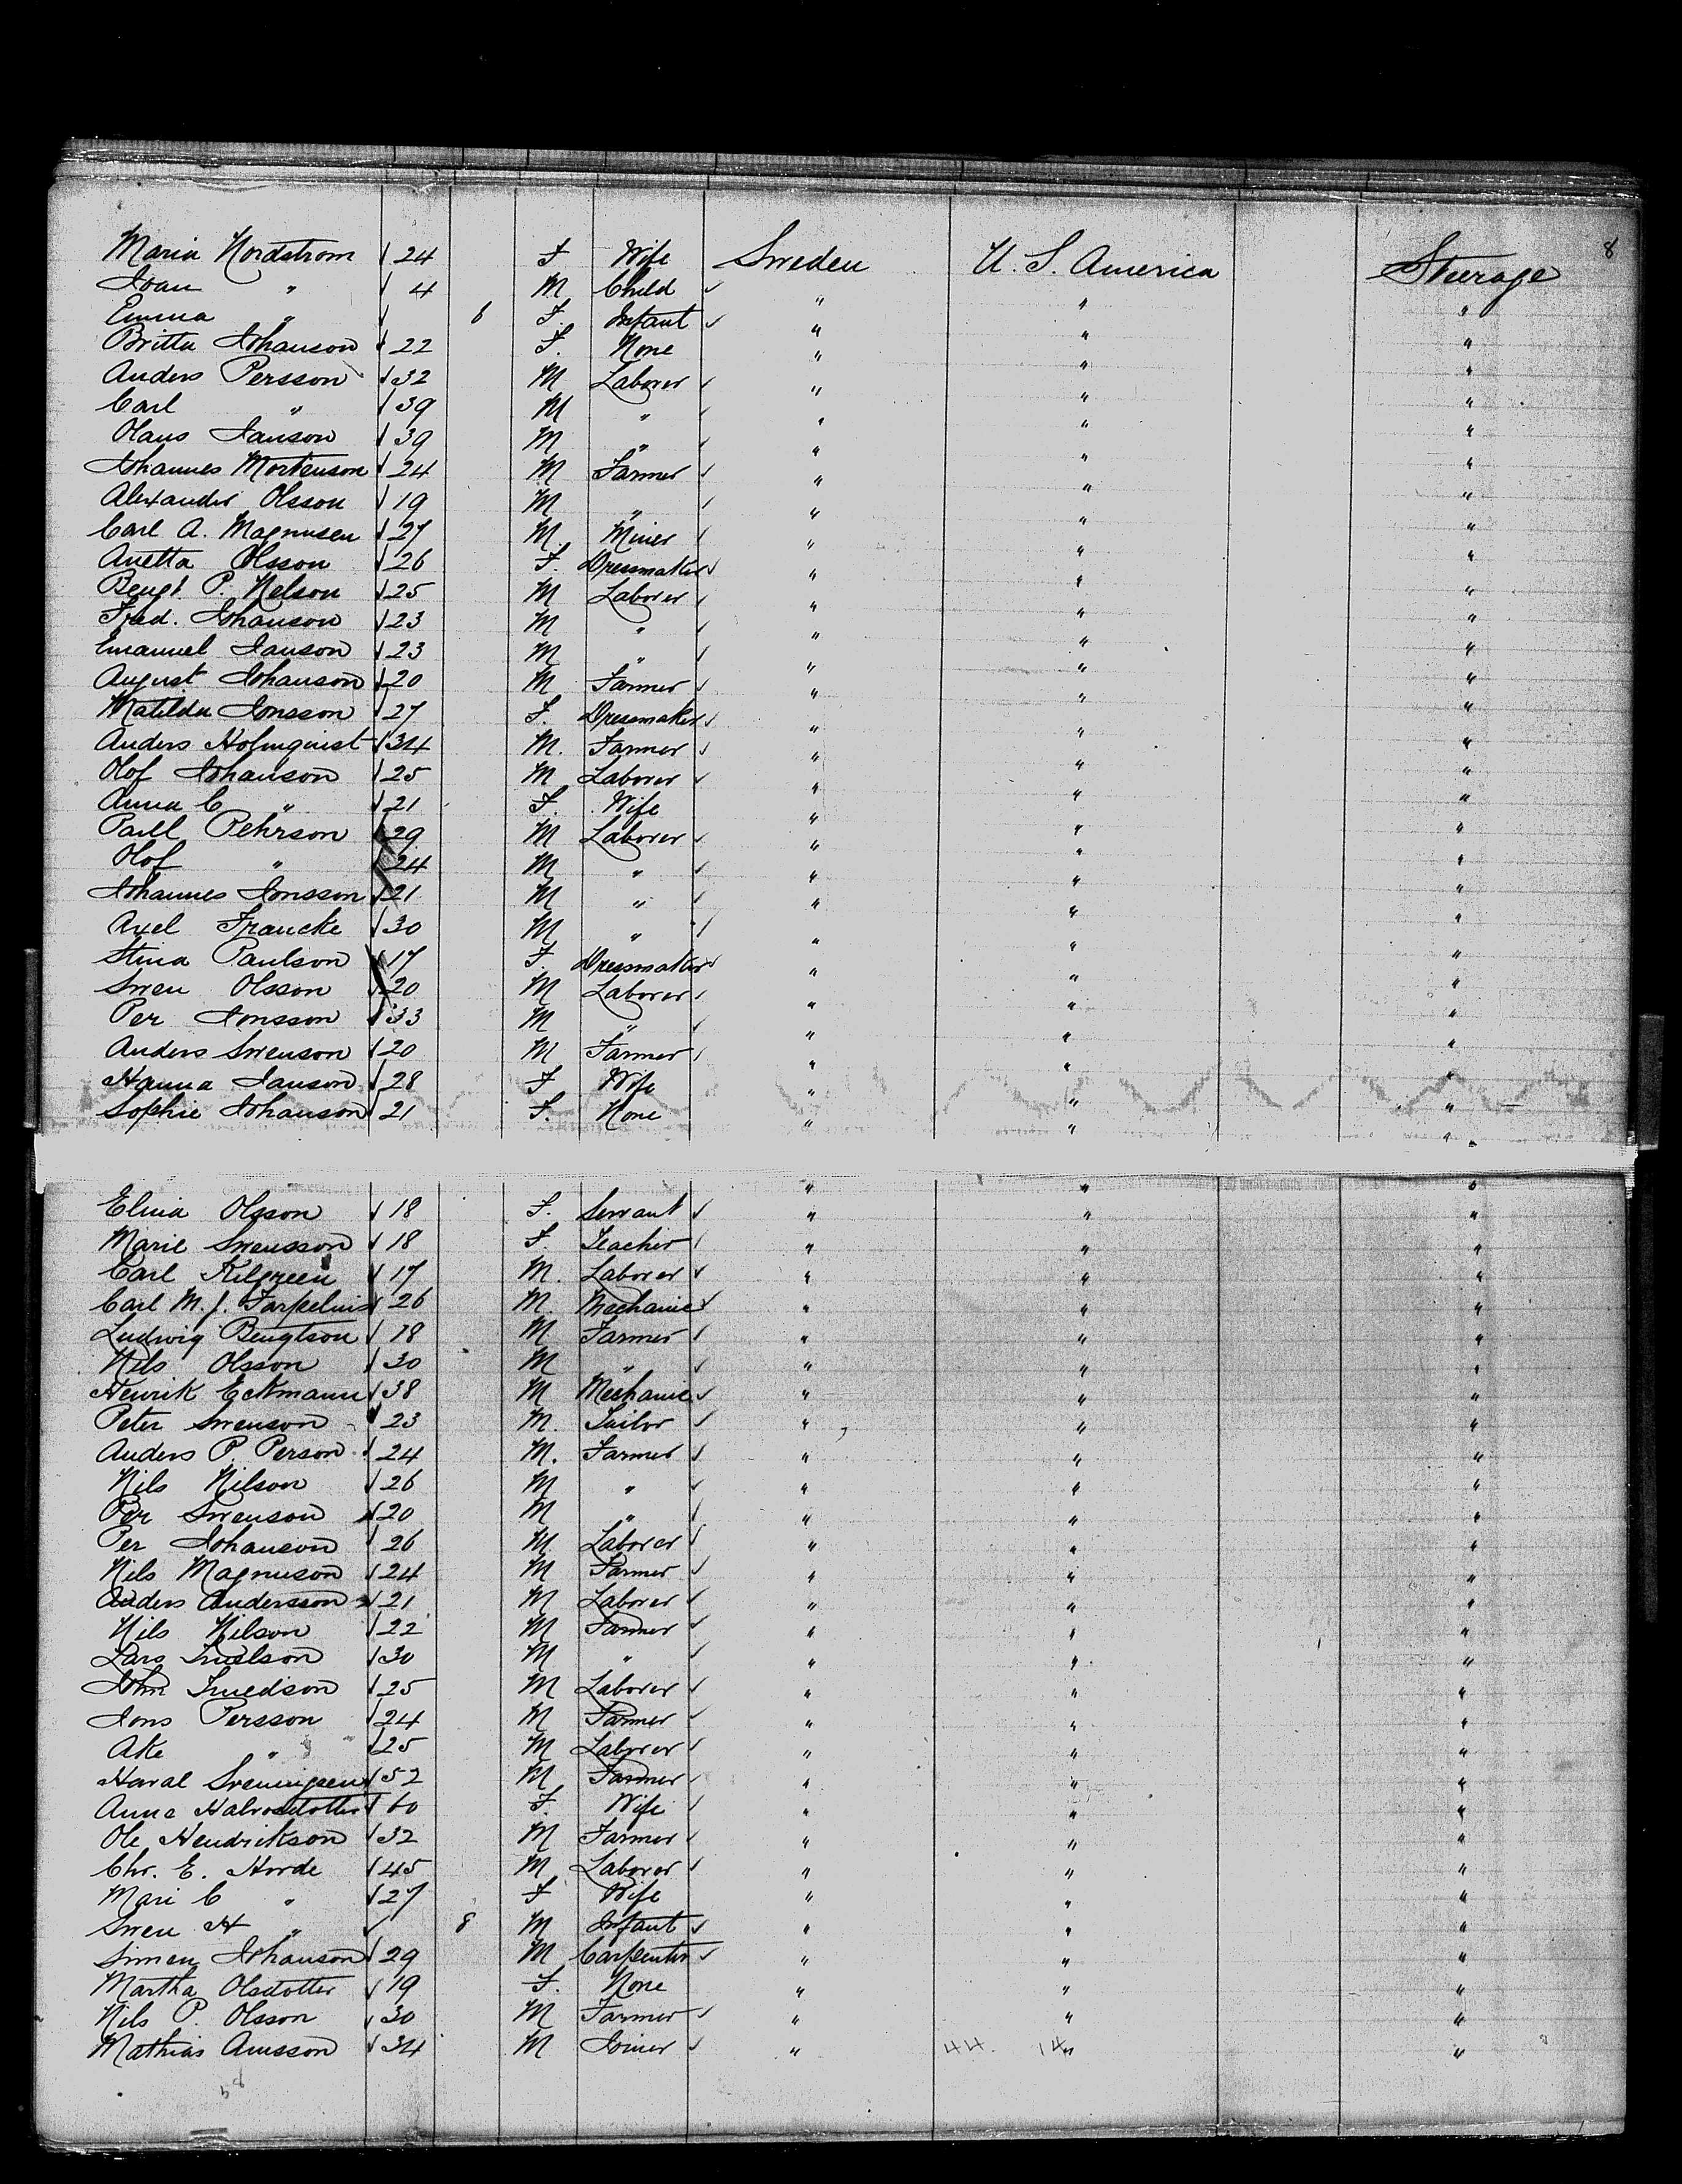 8
Maria Nordstrom 24 F Wife Sweden U. S. America Steerage
Ivan " 4 M Child " " "
Emma " 6 F Infant " " "
Britta Johanson 22 F. None " " "
Anders Persson 32 M Laborer " " "
Carl " 39 M " " " "
Olaus Janson 39 M " " " "
Johannes Mortenson 24 M Farmer " " "
Alexander Olsson 19 M " " " "
Carl A. Magnusen 27 M. Miner " " "
Anetta Olsson 26 F. Dressmaker " " "
Bengt P. Nelson 25 M Laborer " " "
Fred. Johanson 23 M " " " "
Emanuel Janson 23 M " " " "
August Johanson 20 M Farmer " " "
Matilda Jonsson 27 F. Dressmaker " " "
Anders Holmquist 34 M. Farmer " " "
Olof Johanson 25 M Laborer " " "
Anna C " 21 F. Wife " " "
Paell Pehrson 29 M Laborer " " "
Olof " 24 M " " " "
Johannes Jonsson 21 M " " " "
Axel Francke 30 M " " " "
Stina Paulson 17 F. Dressmaker " " "
Swen Olsson 20 M Laborer " " "
Per Jonsson 33 M " " " "
Anders Swenson 20 M Farmer " " "
Hanna Janson 28 F Wife " " "
Sophie Johanson 21 F. None " " "
Elina Olsson 18 F. Servant " " "
Marie Swensson 18 F. Teacher " " "
Carl Kilgreen 17 M. Laborer " " "
Carl M. J. 26 M. Mechanic " " "
Ludwig Bengtson 18 M Farmer " " "
Nils Olsson 30 M " " " "
Henrik Eckmann 38 M Mechanic " " "
Peter Swenson 23 M. Tailor " " "
Anders P. Person 24 M. Farmer " " "
Nils Nilson 26 M " " " "
Per Swenson 20 M " " " "
Per Johanson 26 M Laborer " " "
Nils Magnuson 24 M Farmer " " "
Anders Andersson 21 M Laborer " " "
Nils Nilson 22 M Farmer " " "
Lars 30 M " " " "
John 25 M Laborer " " "
Jons Persson 24 M Farmer " " "
Ake " 25 M Laborer " " "
52 M Farmer " " "
Anna 60 F. Wife " " "
Ole Hendrikson 32 M Farmer " " "
Chr. E. Horde 45 M Laborer " " "
Mari C " 27 F Wife " " "
Swen H " 8 M Infant " " "
Simen Johanson 29 M Carpenter " " "
Martha Olsdotter 19 F. None " " "
Nils P. Olsson 30 M Farmer " " "
Mathias Amsson 34 M Joiner " 44. 14 " "
58